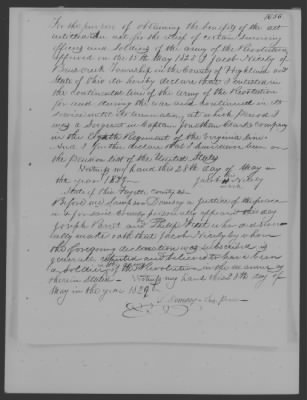 1656
For the purpose of obtaining the benefit of the act
entitled an act for the relief of certain Surviving
officers and Soldiers of the army of the Revolution
approved on the 15th May 1828 I Jacob Nicely of
Brushcreek Township in the County of Highland and
State of Ohio do hereby declare that I enlisted in
the Continental line of the Army of the Revolution
for and during the war and continued in its
service until its termination, at which period I
was a Sergeant in Captain Jonathan Company
in the Eighth Regiment of the Virginia line.
And I further declare that I have been on
the pension list of the United States
Witness my hand this 28th day of May in
the year 1829 Jacob Nicely
mark
State of Ohio Fayette County ss
Before me a justice of the peace
in & for said County personally appeared this day
Joseph and Philip who did
make oath that Jacob Nicely by whom
the foregoing declaration was subscribed is
generally reputed and believed to have been
a Soldier of the Revolution in the manner
therein Stated Witness my hand this 28th day of
May in the year 1829